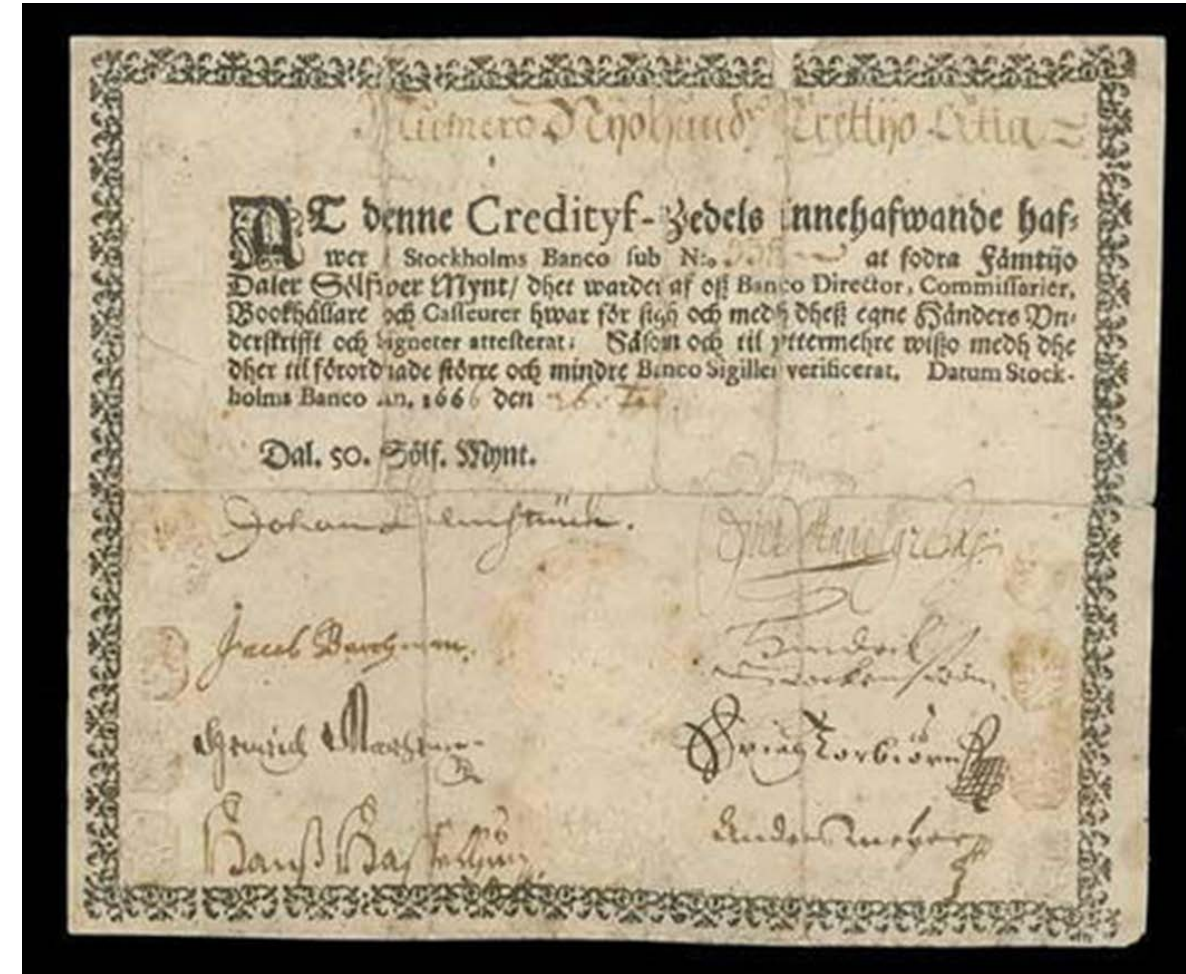 Numero Nijohund Trettijo Åtta
AT denne Credityf-Zedels innehafwande haf-
wer i Stockholms Banco sub N:o 938 at fodra Fämtijo
Daler Sölfwer Mynt/ dhet warder af oß Banco Director, Commissarier,
Bookhållare och Casseurer hwar för sigh och medh dheß egne Händers Vn-
derskrifft och Signeter attesterat; Såsom och til yttermehre wißo medh dhe
dher til förordnade större och mindre Banco Sigiller verificerat. Datum Stock-
holms Banco An. 1666 den
Dal. 50. Sölf. Mynt.
Johan
Jacob
Hinrich
Hindrich
Torbiörn
Hanß
Anders Meijer